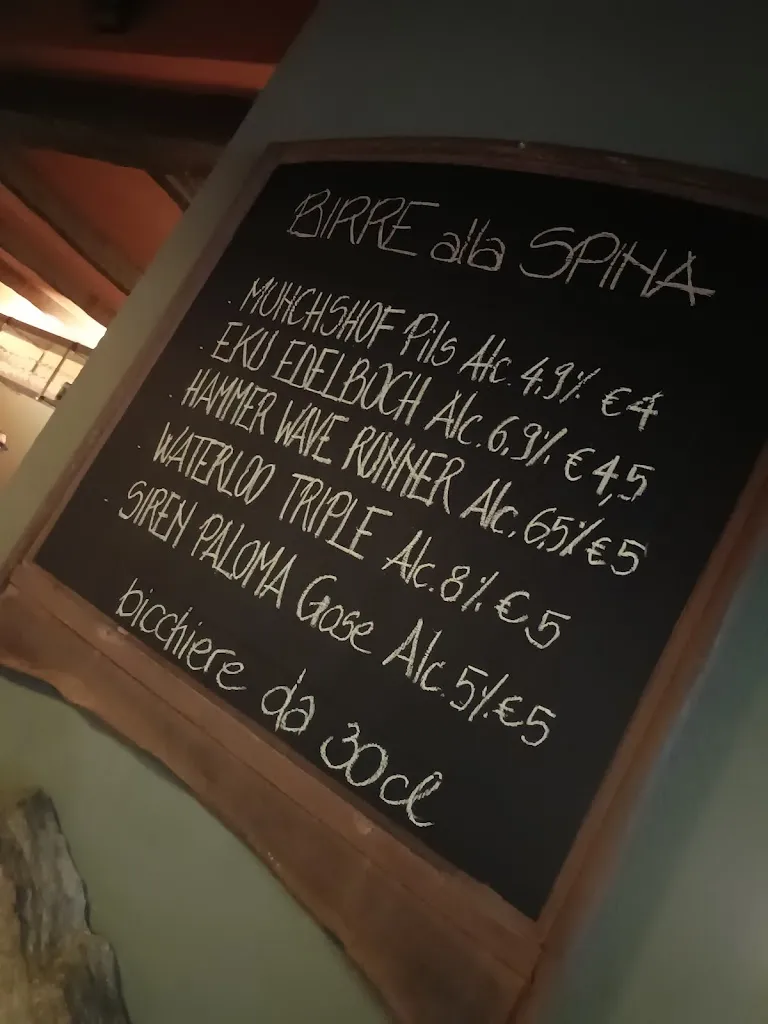 BIRRE alla SPINA
- MUNCHSHOF Pils Alc. 4,9% €4
- EKU EDELBOCH Alc. 6,9% €4,5
- HAMMER WAVE RUNNER Alc. 6,5% €5
- WATERLOO TRIPLE Alc. 8% €5
- SIREN PALOMA Gose Alc. 5% €5
bicchiere da 30cl